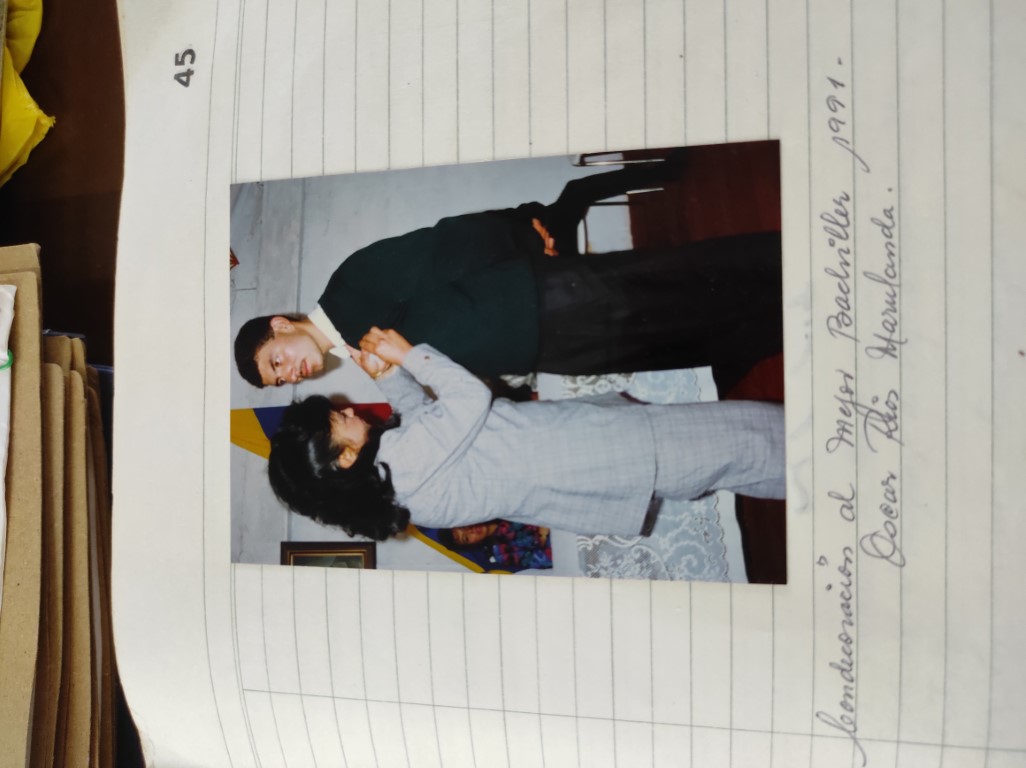 45
Condecoración al Mejor Bachiller 1991.
Oscar Ríos Marulanda.